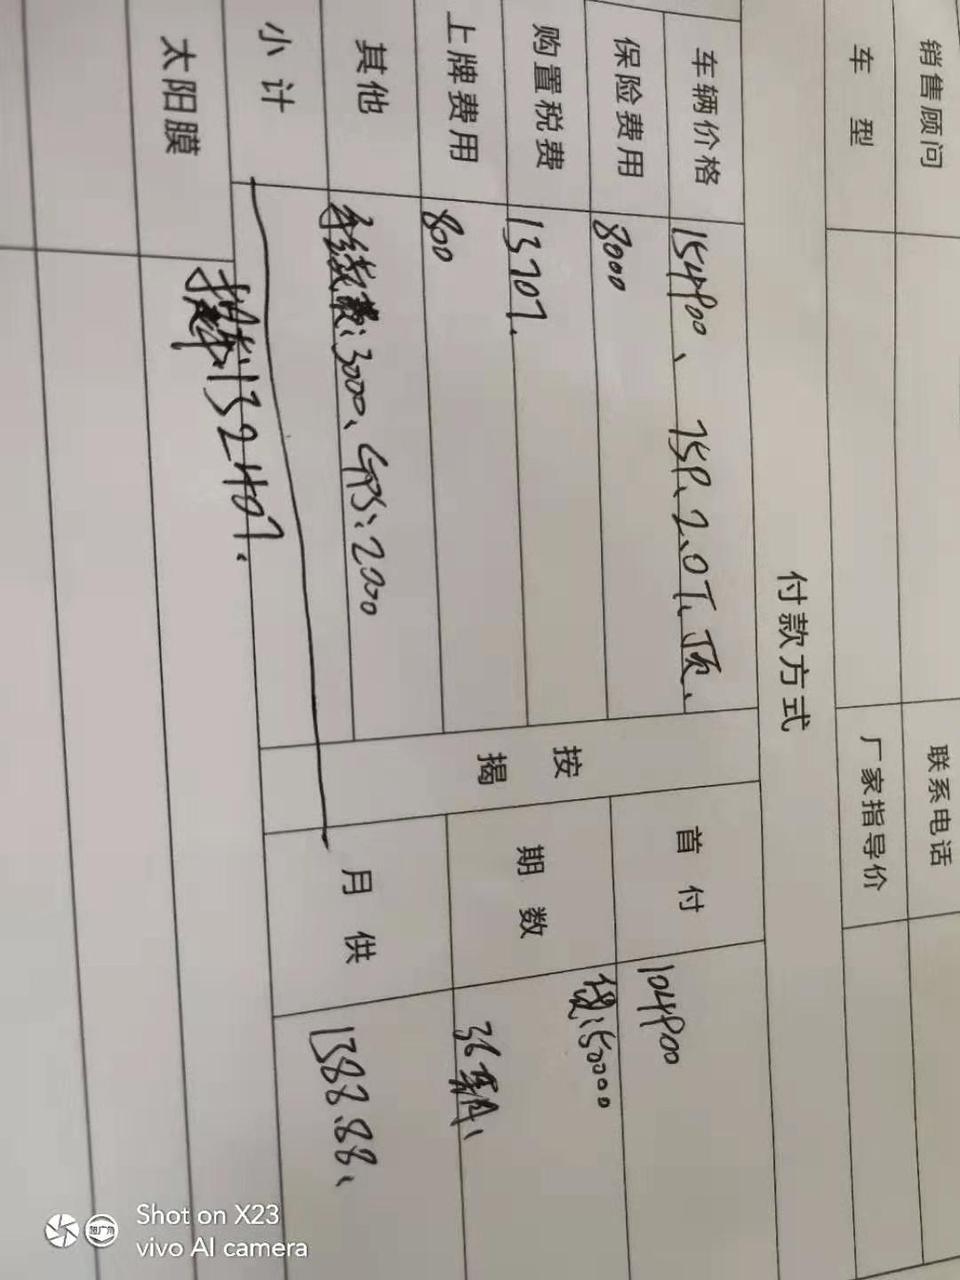 销售顾问
联系电话
车型
厂家指导价
付款方式
车辆价格
154900、 75P、2.0T、顶、
首付
104900
保险费用
8000
贷:50000
购置税费
13707.
按揭
期数
36期
上牌费用
800
其他
手续费:3000、GPS:2000
月供
1388.88、
小计
太阳膜
132407.
Shot on X23
vivo AI camera